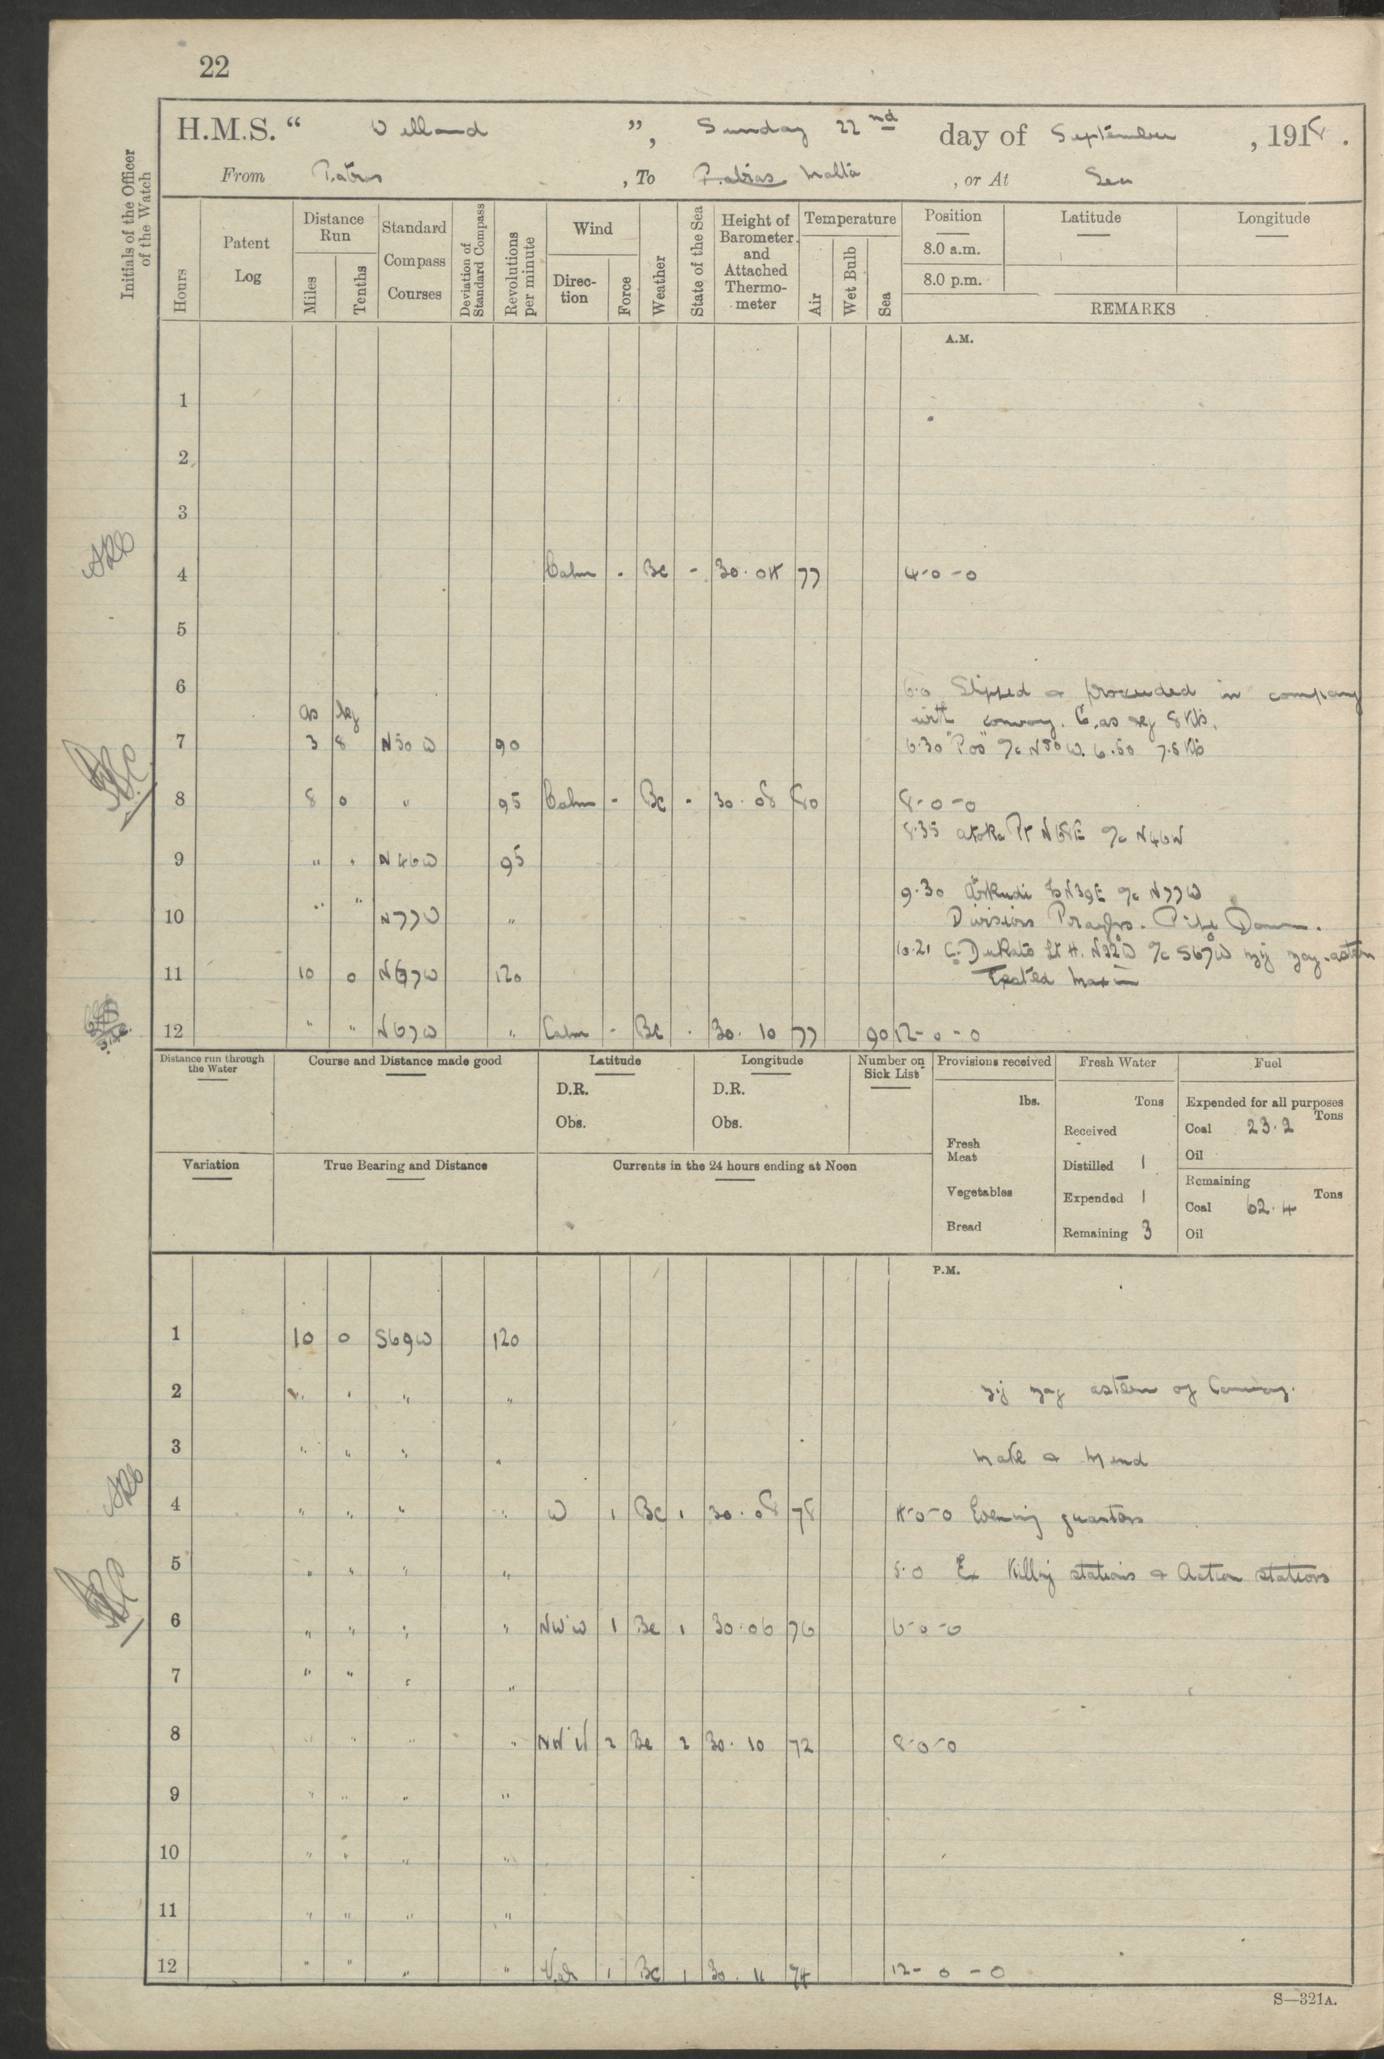 22
H.M.S. “ Welland ”, Sunday 22nd day of September , 1918 .
From Patras , To Patras Malta , or At Sea
Initials of the Officer of the Watch
Hours Patent Log Distance Run Miles Tenths Standard Compass Courses Deviation of Standard Compass Revolutions per minute Wind Direction Force Weather State of the Sea Height of Barometer and Attached Thermometer Temperature Air Wet Bulb Sea Position Latitude Longitude
8.0 a.m.
8.0 p.m.
REMARKS
A.M.
1
2
3
4 Calm - Bc - 30.04 77 4-0-0
5
6 6.0 Slipped & proceeded in company
as req with convoy. C. as req 8 Kts.
7 3 8 N50W 90 6.30 "Poo" %c N50W. 6.50 7.5 Kts
8 8 0 " 95 Calm - Bc - 30.08 80 8-0-0
8.35 Pt N68E %c N46W
9 " " N46W 95
9.30 N39E %c N77W
10 " " N77W " Divisions Prayers. Pipe Down.
10.21 C. Dukato Lt H. N22W %c S67W zig zag astern
11 10 0 N67W 120 Tested Maxim
12 " " N67W " Calm - Bc - 30.10 77 90 12-0-0
Distance run through the Water Course and Distance made good Latitude Longitude Number on Sick List Provisions received Fresh Water Fuel
D.R. D.R. lbs. Tons Expended for all purposes Tons
Obs. Obs. Fresh Meat Received - Coal 23.2
Oil
Variation True Bearing and Distance Currents in the 24 hours ending at Noon Distilled 1 Remaining Tons
Vegetables Expended 1 Coal 62.4
Bread Remaining 3 Oil
P.M.
1 10 0 S69W 120
2 " " " " zig zag astern of Convoy.
3 " " " " Make & Mend
4 " " " " W 1 Bc 1 30.08 78 4-0-0 Evening quarters
5 " " " " 5.0 Ex Killing stations & Action stations
6 " " " " NW'W 1 Bc 1 30.06 76 6-0-0
7 " " " "
8 " " " " NW'W 2 Bc 2 30.10 72 8-0-0
9 " " " "
10 " " " "
11 " " " "
12 " " " " Var 1 Bc 1 30.11 74 12-0-0
S—321A.